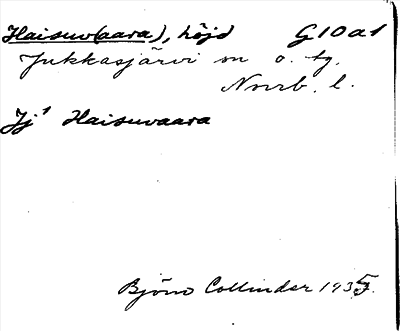 Haisuv(aara), höjd G10a1
Jukkasjärvi sn o. tg.
Norrb. l.
Jj¹ Haisuvaara
Björn Collinder 1935.